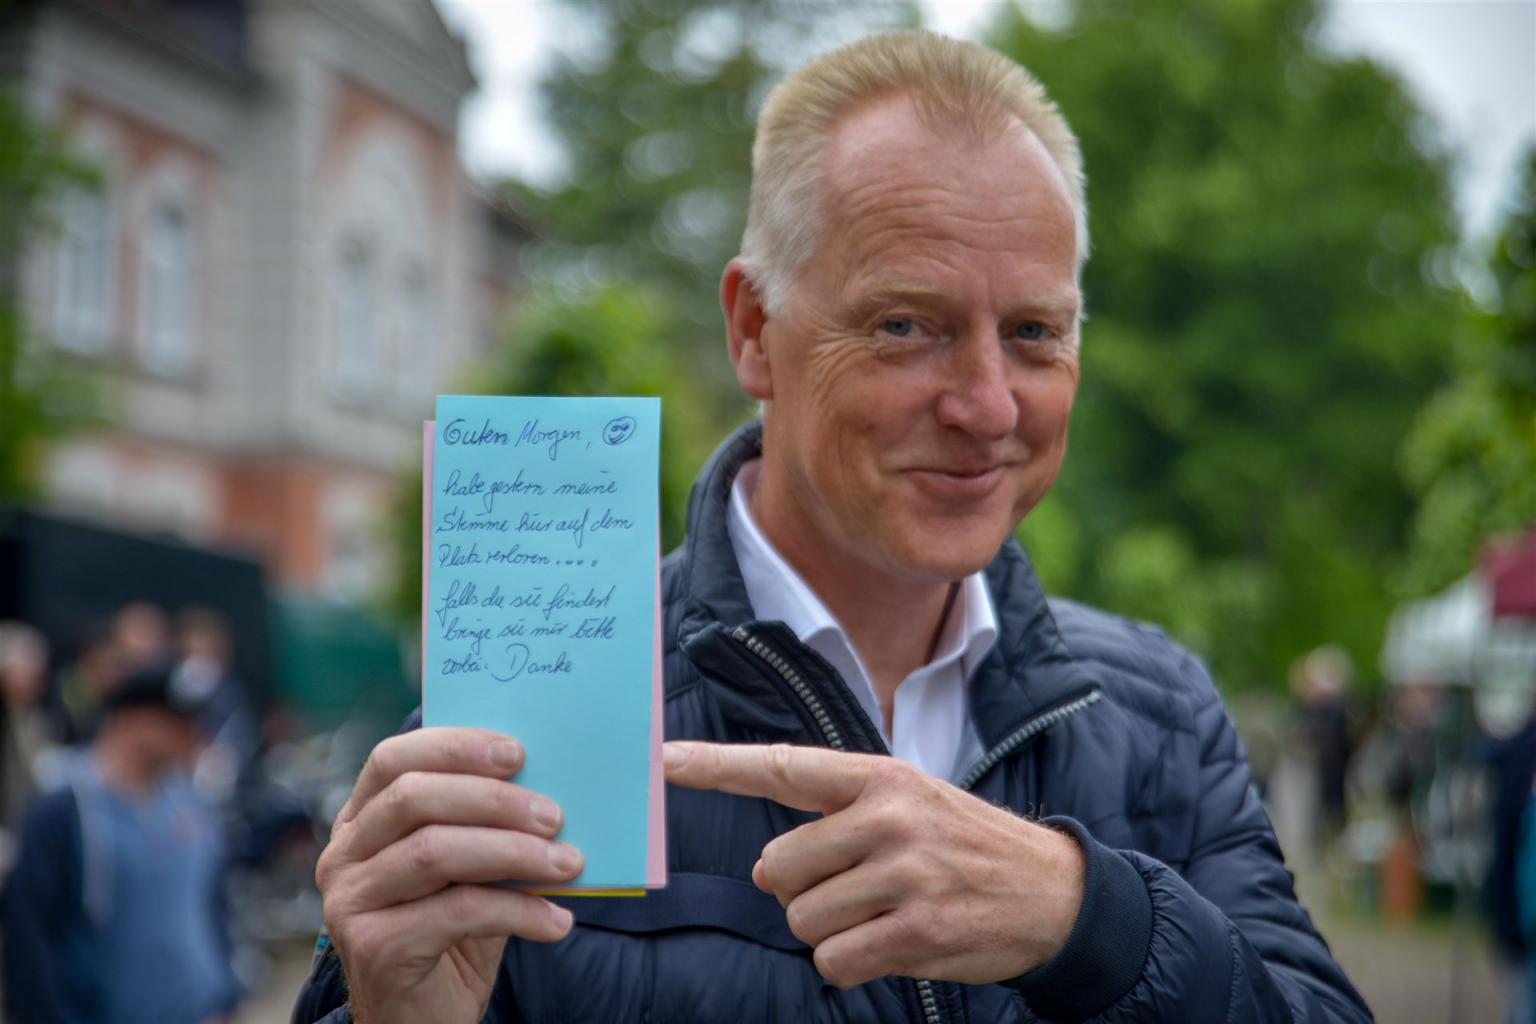 Guten Morgen,
habe gestern meine
Stimme hier auf dem
Platz verloren....
falls du sie findest
bringe sie mir bitte
vorbei. Danke